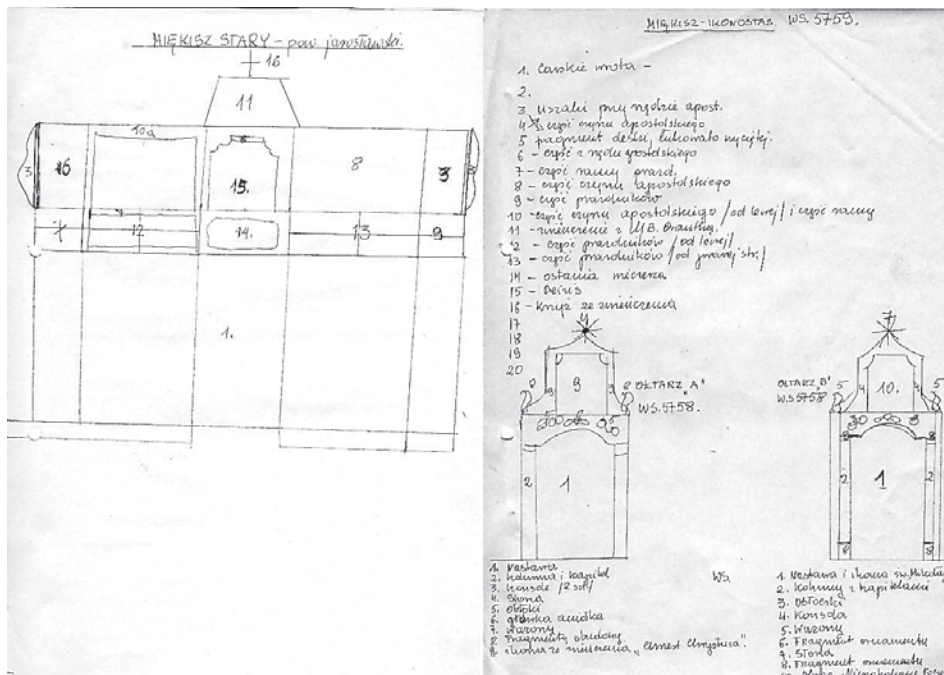 MIĘKISZ STARY - pow. jarosławski.
16
11
10a
3
16
15.
8
3
7
12
14.
13
9
1.
MIĘKISZ-IKONOSTAS WS. 5759.
1. Carskie wrota -
2.
3 Uszaki przy rzędzie apost.
4 część czynu apostolskiego
5 fragment deski, łukowato wyciętej.
6 - część z rzędu apostolskiego
7 - część ramy prazd.
8 - część czynu apostolskiego
9 - część prazdników
10 - część czynu apostolskiego /od lewej/ i część ramy
11 - zwieńczenie z M.B. Orantką.
12 - część prazdników /od lewej/
13 - część prazdników /od prawej str./
14 - ostatnia wieczerza
15 - Deisis
16 - Krzyż ze zwieńczenia
17
18
19
20
9
OŁTARZ "A"
WS.5758.
2
1
7
10.
OŁTARZ "B"
WS 5758
5
5
2
1
2
8
8
1. Nastawa
2. Kolumna i kapitel
3. Konsole /2 szt/
4. Słońce
5. Obłoki
6. główka aniołka
7. Wazony
8. Fragmenty obudowy
9. Ikona ze zwieńczenia „Chrzest Chrystusa".
WS.
1. Nastawa i ikona św. Mikołaj
2. Kolumny z kapitelami
3. Obłoczki
4. Konsola
5. Wazony
6. Fragment ornamentu
7. Słońce
8. Fragment ornamentu